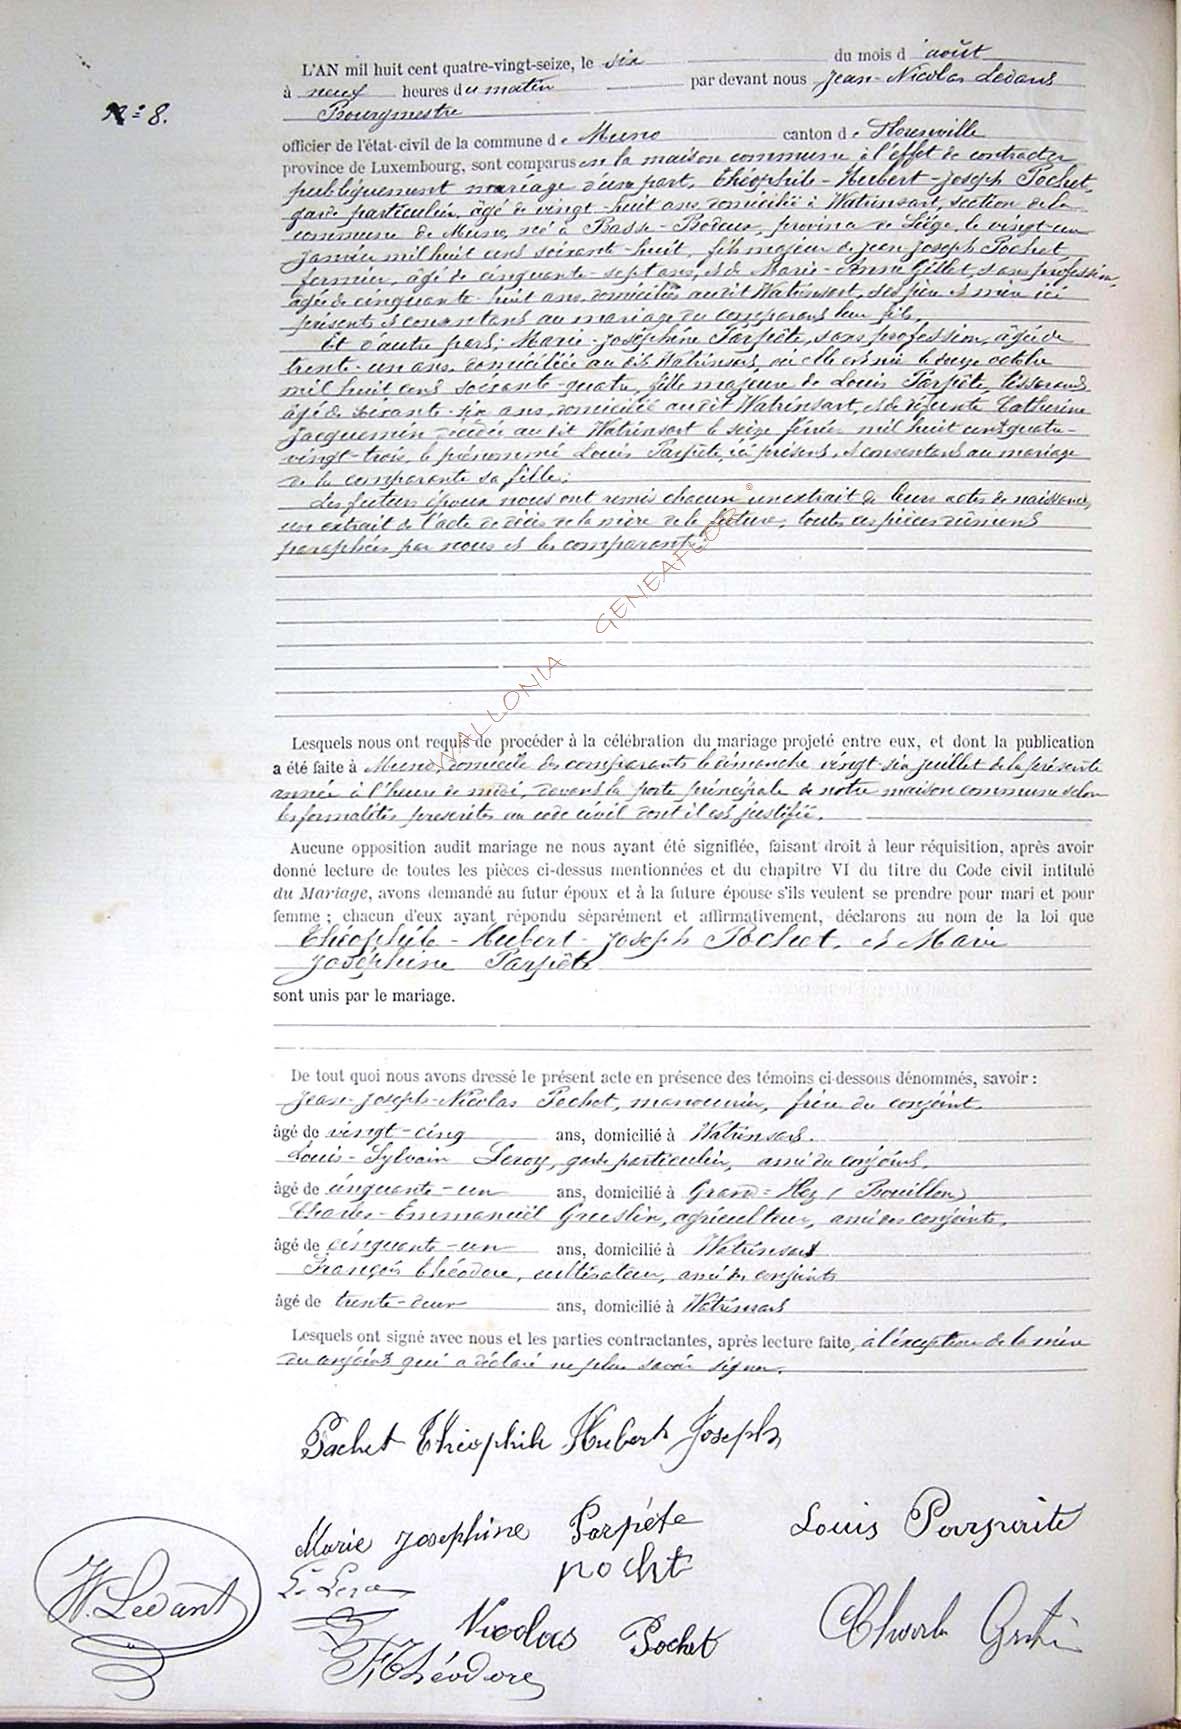 N° 8.
L'AN mil huit cent quatre-vingt-seize, le six du mois d'août
à neuf heures du matin par devant nous Jean-Nicolas Ledant
Bourgmestre
officier de l'état-civil de la commune de Muno canton de Florenville
province de Luxembourg, sont comparus en la maison commune à l'effet de contracter
publiquement mariage d'une part, Théophile-Hubert-Joseph Pochet,
garde particulier, âgé de vingt-huit ans, domicilié à Watrinsart, section de la
commune de Muno, né à Basse-Bodeux, province de Liége, le vingt-un
janvier mil huit cent soixante-huit, fils majeur de Jean-Joseph Pochet,
fermier, âgé de cinquante-sept ans, et de Marie-Anne Gillet, sans profession,
âgée de cinquante-huit ans, domiciliés audit Watrinsart, ses père et mère ici
présents et consentans au mariage du comparant leur fils.
Et d'autre part, Marie-Joséphine Parpète, sans profession, âgée de
trente-un ans, domiciliée au dit Watrinsart, où elle est née le douze octobre
mil huit cent soixante-quatre, fille majeure de Louis Parpète, tisserand
âgé de soixante-six ans, domicilié audit Watrinsart, et de défunte Catherine
Jacquemin décédée au dit Watrinsart le seize février mil huit cent quatre-
vingt-trois, le prénommé Louis Parpète, ici présent, et consentant au mariage
de la comparante sa fille.
Les futurs époux nous ont remis chacun un extrait de leurs actes de naissance,
un extrait de l'acte de décès de la mère de la future, toutes ces pièces dûment
paraphées par nous et les comparants.
WALLONIA GENEAFLOR ©
Lesquels nous ont requis de procéder à la célébration du mariage projeté entre eux, et dont la publication
a été faite à Muno, domicile des comparants le dimanche vingt-six juillet de la présente
année à l'heure de midi, devant la porte principale de notre maison commune selon
les formalités prescrites au code civil dont il est justifié.
Aucune opposition audit mariage ne nous ayant été signifiée, faisant droit à leur réquisition, après avoir
donné lecture de toutes les pièces ci-dessus mentionnées et du chapitre VI du titre du Code civil intitulé
du Mariage, avons demandé au futur époux et à la future épouse s'ils veulent se prendre pour mari et pour
femme ; chacun d'eux ayant répondu séparément et affirmativement, déclarons au nom de la loi que
Théophile-Hubert-Joseph Pochet, et Marie
Joséphine Parpète
sont unis par le mariage.
De tout quoi nous avons dressé le présent acte en présence des témoins ci-dessous dénommés, savoir :
Jean-Joseph-Nicolas Pochet, manouvrier, frère du conjoint,
âgé de vingt-cinq ans, domicilié à Watrinsart.
Louis-Sylvain Leroy, garde particulier, ami du conjoint,
âgé de cinquante-un ans, domicilié à Grand-Hez (Bouillon)
Charles-Emmanuël Gruslin, agriculteur, ami des conjoints,
âgé de cinquante-un ans, domicilié à Watrinsart
François Théodore, cultivateur, ami des conjoints
âgé de trente-deux ans, domicilié à Watrinsart
Lesquels ont signé avec nous et les parties contractantes, après lecture faite, à l'exception de la mère
du conjoint qui a déclaré ne plus savoir signer.
Pochet Théophile Hubert Joseph
Marie Josephine Parpéte Louis Parpaite
pochet
L. Leroy
N. Ledant
Nicolas Pochet
F. Théodore